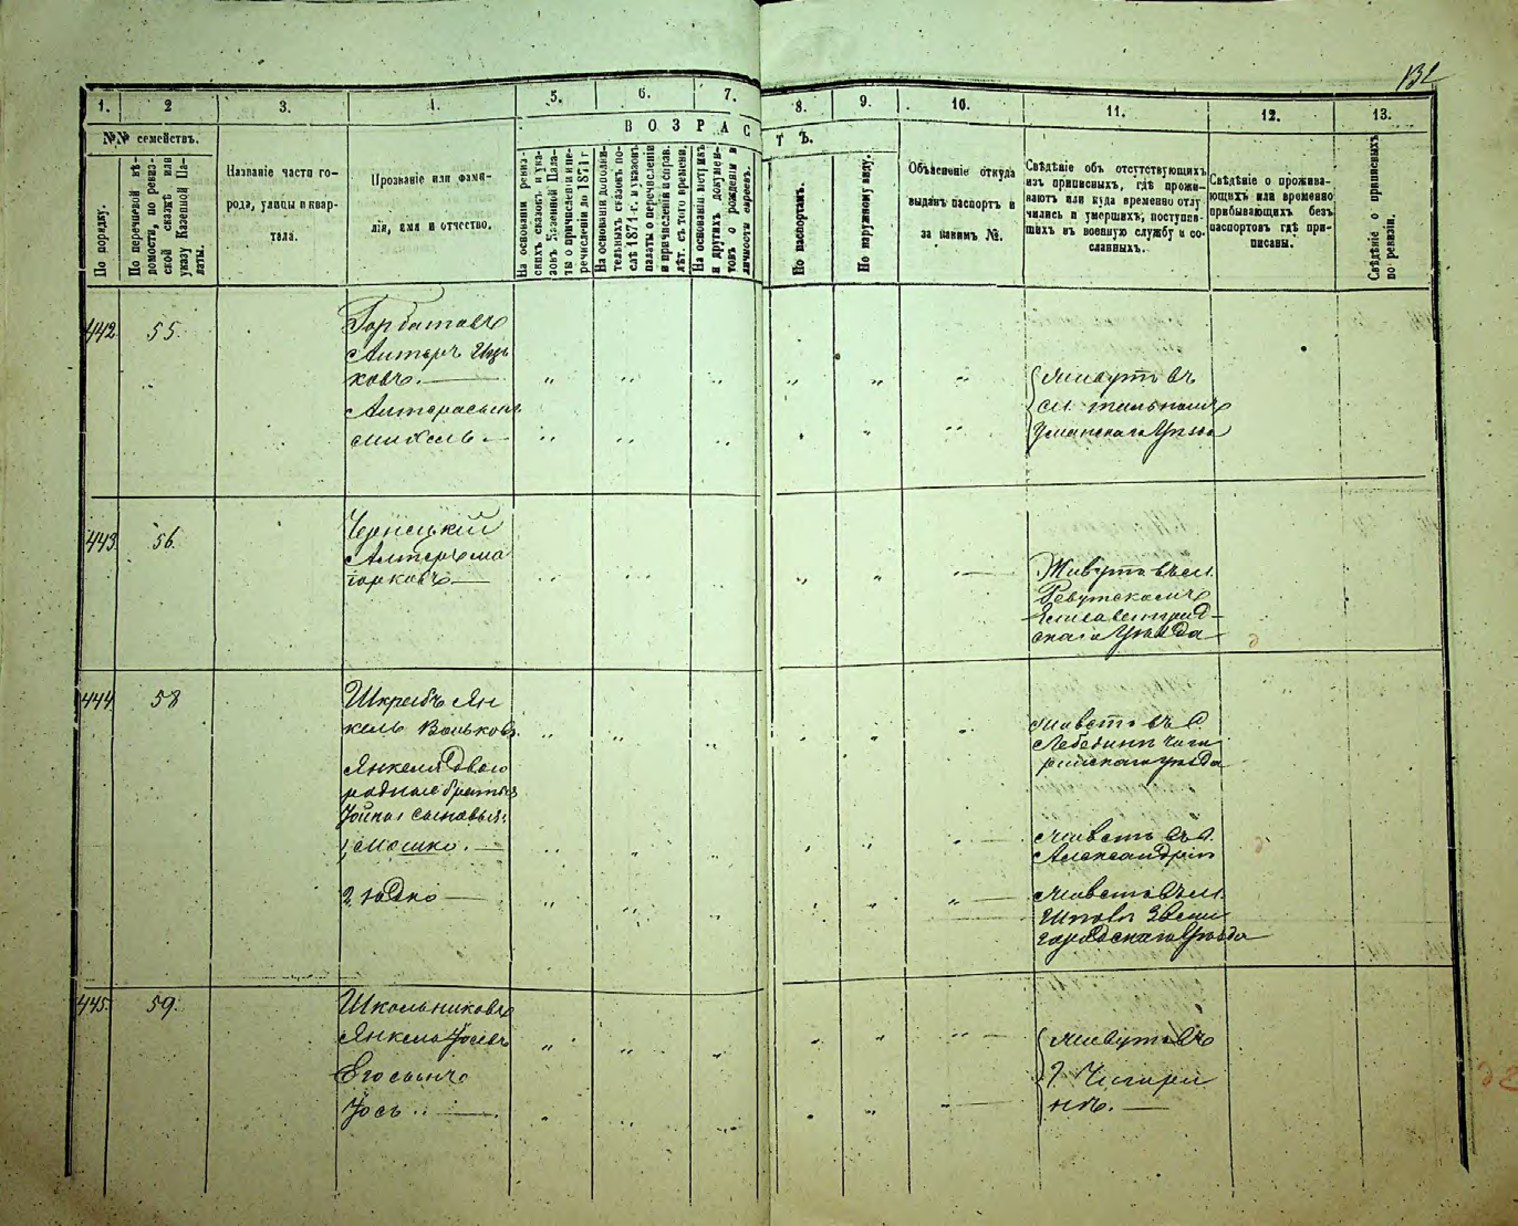 132
1.
2
3.
4.
5.
6.
7.
8.
9.
10.
11.
12.
13.
№№ семействъ.
ВОЗРАС
ТЪ.
По порядку.
По перечневой вѣ-
домости, по ревиз-
ской сказкѣ или
указу Казенной Па-
латы.
Названіе части го-
рода, улицы и квар-
тала.
Прозваніе или фами-
лія, имя и отчество.
На основаніи ревиз-
скихъ сказокъ и ука-
зовъ Казенной Пала-
ты о причисленіи и пе-
речисленіи до 1874 г.
На основаніи дополни-
тельныхъ сказокъ по-
слѣ 1874 г. и указовъ
палаты о перечисленіи
и причисленіи и справ.
лѣт. съ того времени.
На основаніи метрикъ
и другихъ докумен-
товъ о рожденіи и
личности евреевъ.
По паспортамъ.
По наружному виду.
Объясненіе откуда
выданъ паспортъ и
за какимъ №.
Свѣдѣніе объ отсутствующихъ
изъ приписныхъ, гдѣ прожи-
ваютъ или куда временно отлу
чились и умершихъ, поступив-
шихъ въ военную службу и со-
сланныхъ.
Свѣдѣніе о прожива-
ющихъ или временно
прибывающихъ безъ
паспортовъ гдѣ при-
писаны.
Свѣдѣніе о приписныхъ
по ревизіи.
442 55.
Горбатовъ
Алтеръ Иць
ковъ.
Алтера сынъ
Живутъ въ
м. Тальномъ
Уманскаго Уѣзда
443. 56.
Чернецкій
Алтеръ Ма
іорковъ
Живутъ въ м.
Ревутскомъ
Елисаветград-
скаго Уѣзда
444 58
Шкребъ Ян
кель Вольковъ.
Янкеля двою
родные братья
Іойны сыновья:
1, Мошко.
2, Юдко
Живетъ въ с.
Лебединъ Чиги
ринскаго уѣзда
Живетъ въ г.
Александріи
Живетъ въ м.
Шпола Звени
городскаго Уѣзда
445. 59.
Школьниковъ
Янкель Іосевъ
Его сынъ
Іось
Живутъ въ
г. Чигири
нѣ.